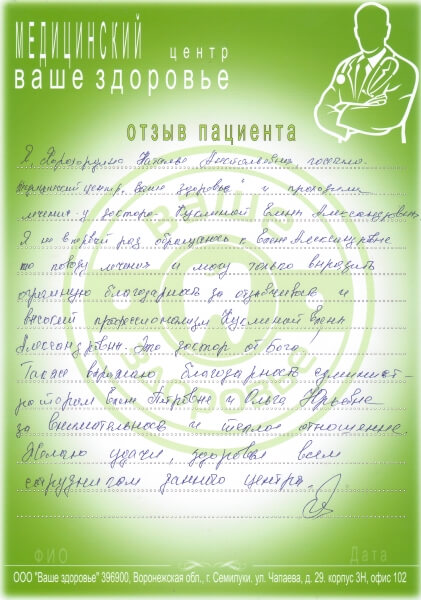 МЕДИЦИНСКИЙ центр
ваше здоровье
отзыв пациента
Я, Наталья посетила
медицинский центр „Ваше здоровье" и проходила
лечение у доктора Елены Александровны
Я не впервый раз обращаюсь к Елене Александровне
по поводу лечения и могу только выразить
огромную благодарность за отзывчивость и
высокий профессионализм Елене
Александровне. Это доктор от Бога!
Также выражаю благодарность админист-
раторам Петровне и Ольге Юрьевне
за внимательное и теплое отношение.
Желаю удачи, здоровья всем
сотрудникам данного центра.
ВАШЕ ЗДОРОВЬЕ
ФИО Дата
ООО "Ваше здоровье" 396900, Воронежская обл., г. Семилуки. ул. Чапаева, д. 29. корпус 3Н, офис 102